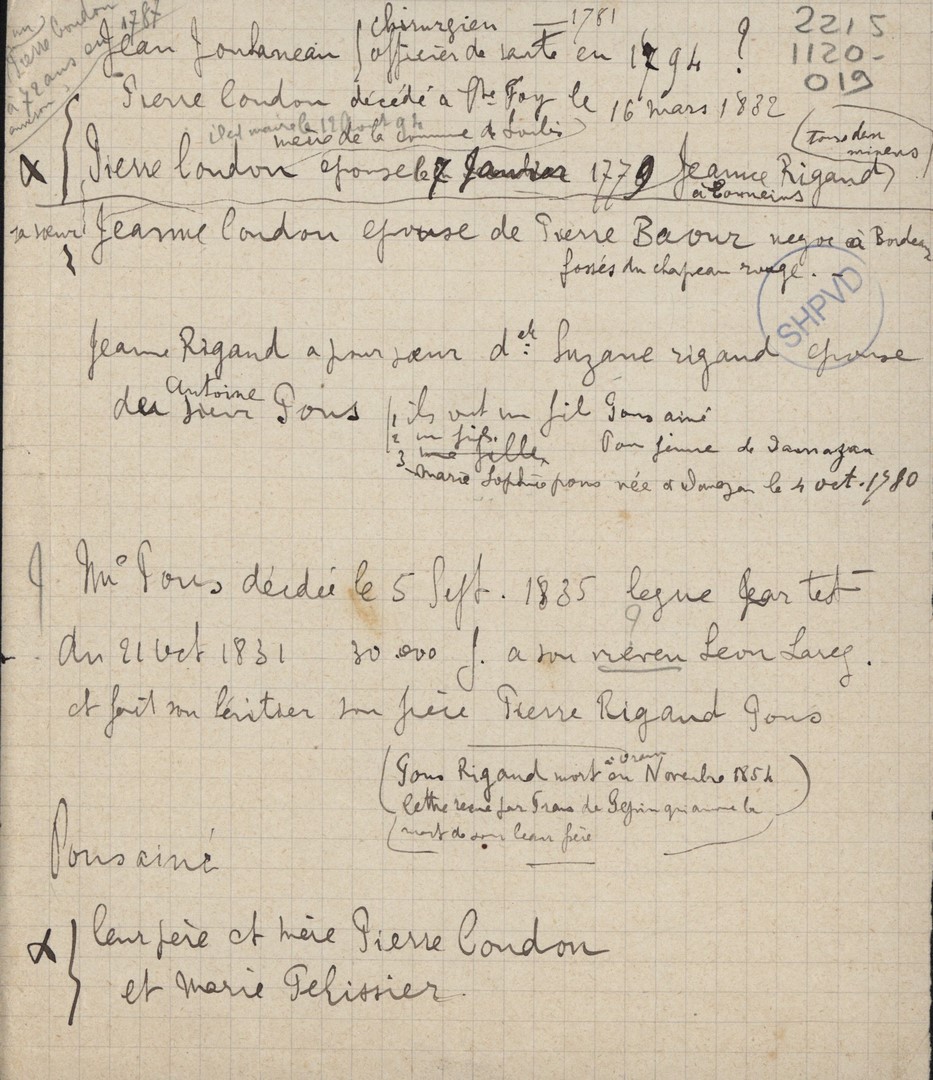 un
Pierre Coudon
à 72 ans en 1787
2215
1120-
019
chirurgien — 1781
Jean Jouhaneau officier de santé en 1794 ?
Pierre Coudon décédé à Ste Foy le 16 mars 1832
il est maire le 12 août 94
maire de la commune de
Pierre Coudon epouse le 7 Janvier 1779 Jeanne Rigaud
(tous deux mineurs)
à
sa sœur Jeanne Coudon epouse de Pierre Bavur negoc à Bordeaux
fossés du chapeau rouge. -
SHPVD
Jeanne Rigaud a pour sœur d^elle Suzane rigaud epouse
du sieur Antoine Pons
1 ils ont un fil Pons ainé
2 un fils. Pons jeune de damazan
3 une fille
marie Sophie pons née à Damazan le 4 oct. 1780
Mr Pons décédé le 5 Sept. 1835 legue par test
du 21 oct 1831 30.000 f. a son neveu Leon Lareg.
?
et fait son héritier son frère Pierre Rigaud Pons
(Pons Rigaud mort en Novembre 1854
lettre reçue par de qui annonce la
mort de son beau frère)
Pons ainé
leur père et mère Pierre Coudon
et Marie Pelissier.